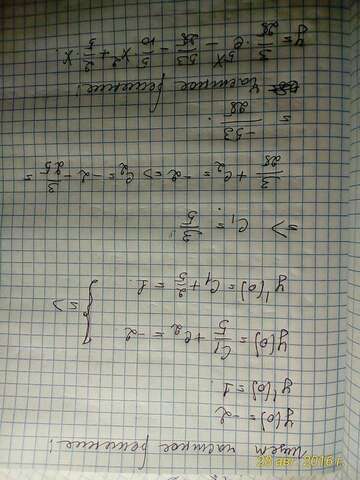 Ищем частное решение!
y(0) = -2
y'(0) = 1
y(0) = C1/5 + C2 = -2
y'(0) = C1 + 2/5 = 1. } =>
=> C1 = 3/5;
3/25 + C2 = -2 => C2 = -2 - 3/25 =
= -53/25.
частное решение!
y = 3/25 · e^5x - 53/25 - 5/10 x² + 2/5 x.
28 авг 2016 г.